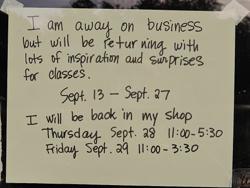 I am away on business
but will be returning with
lots of inspiration and surprises
for classes.
Sept. 13 – Sept. 27
I will be back in my shop
Thursday Sept. 28 11:00-5:30
Friday Sept. 29 11:00-3:30